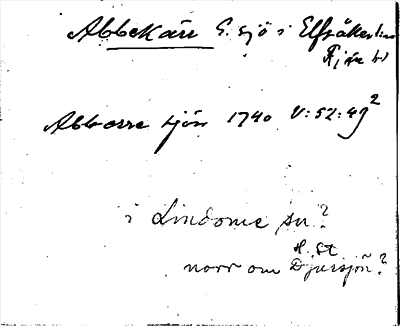 Abbekärr G. sjö i Elfsåkers
Fjäre hd
Abborre tjärn 1740 V:52:49²
i Lindome sn?
H. St
norr om Djursjön?